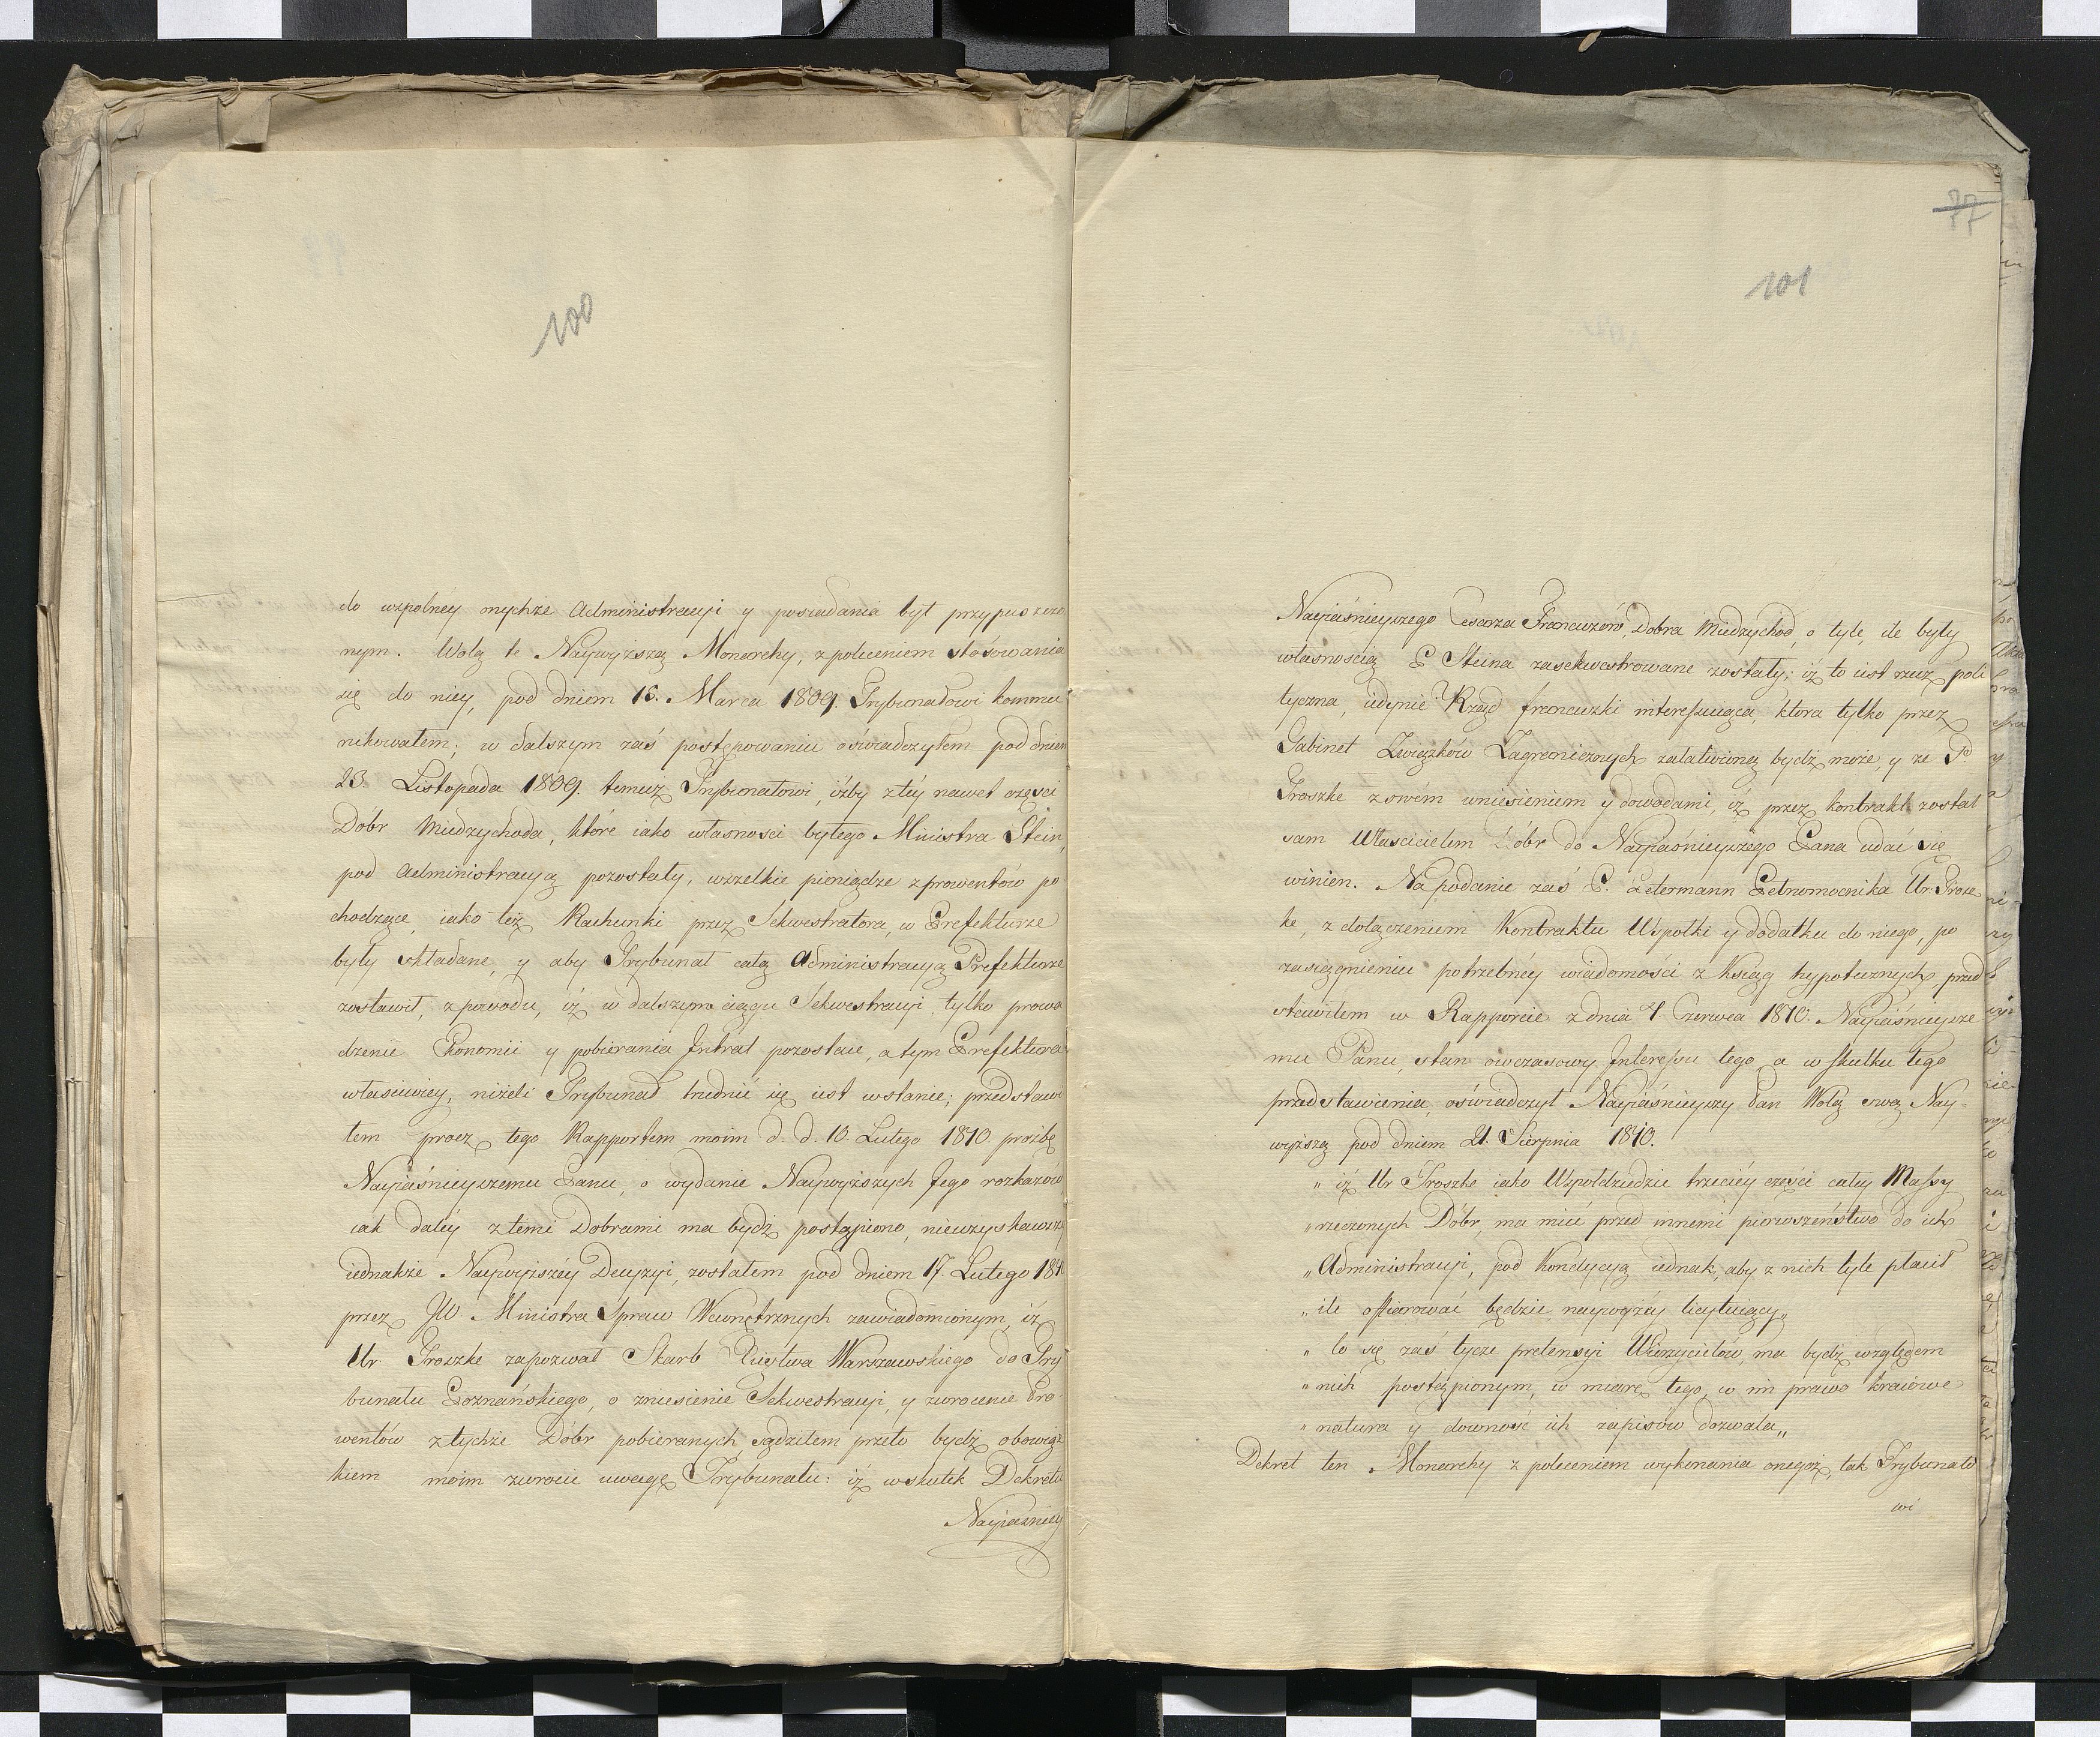 100
do wspolney onychże Administracyi y posiadania był przypuszczo
nym. Wolą tę Naywyższą Monarchy, z poleceniem stosowania
się do niey, pod dniem 15. Marca 1809. Trybunałowi kommu
nikowałem; w dalszym zaś postępowaniu oświadczyłem pod dniem
23. Listopada 1809. temuż Trybunałowi, iżby z téy nawet części
Dóbr Miedzychoda, które iako własności byłego Ministra Stein,
pod Administracyą pozostały, wszelkie pieniądze z prowentów po
chodzące, iako też Rachunki przez Sekwestratora, w Prefekturze
były składane, y aby Trybunał całą Administracyą Prefekturze
zostawił, z powodu, iż w dalszym ciągu Sekwestracyi tylko prowa
dzenie Ekonomii y pobierania Intrat pozostaie, a tym Prefektura
właściwiey, niżeli Trybunał trudnić się iest wstanie; przedstawi
łem procz tego Rapportem moim d. d. 10. Lutego 1810 prożbę
Nayiaśnieyszemu Panu, o wydanie Naywyższych Jego rozkazów
iak daléy z temi Dobrami ma bydź postąpiono, nieuzyskawszy
iednakże Naywyższéy Decyzyi, zostałem pod dniem 17. Lutego 181
przez JW. Ministra Spraw Wewnętrznych zawiadomionym, iż
Ur Troszke zapozwał Skarb Xięstwa Warszawskiego do Try
bunału Poznańskiego, o zniesienie Sekwestracyi, y zwrocenie Pro
wentów z tychże Dóbr pobieranych, sądziłem przeto bydź obowiąz
kiem moim zwrocić uwagę Trybunału: iż w skutek Dekretu
Nayiaśniey
77
101
Nayiaśnieyszego Cesarza Francuzów, Dobra Miedzychod, o tyle, ile były
własnością P Steina zasekwestrowane zostały; iż to iest rzecz poli
tyczna, iedynie Rząd francuzki interessuiąca, ktora tylko przez
Gabinet Związkow Zagranicznych załatwioną bydź może, y że P.
Troszke z swém wniesieniem y dowodami, iż przez kontrakt został
sam Włascicielem Dóbr do Nayiaśnieyszego Pana udać się
winien. Na podanie zaś P. Petermann Pełnomocnika Ur. Trosz
ke, z dołączeniem Kontraktu Wspołki y dodatku do niego, po
zasiągnieniu potrzebnéy wiadomości z Ksiąg hypotecznych przed
stawiłem w Rapporcie z dnia 4 Czerwca 1810. Nayiaśnieysze
mu Panu, stan owczasowy Interessu tego, a w skutku tego
przedstawienia, oświadczył Nayiaśnieyszy Pan Wolą swą Nay
wyższą pod dniem 21. Sierpnia 1810.
„ iż Ur Troszke iako Wspołdziedzic trzeciéy części całey Massy
„ rzeczonych Dóbr, ma mieć przed innemi pierwszeństwo do ich
„ Administracyi, pod Kondycyą iednak, aby z nich tyle płacił
„ ile offiarować będzie naywyżéy licytuiący„
„ Co się zaś tycze pretensyi Wierzycielów, ma bydź względem
„ nich postąpionym, w miarę tego, w im prawo kraiowe
„ natura y downość ich zapisów dozwala„
Dekret ten Monarchy z poleceniem wykonania onegoż, tak Trybunało
wi